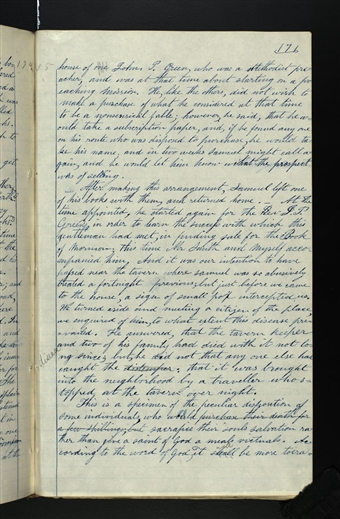 176
house of one John P. Green, who was a Methodist pre-
acher, and was at that time about starting on a pr-
eaching mission. He, like the others, did not wish to
make a purchase of what he considered at that time
to be a nonsensical fable; however, he said, that he w-
ould take a subscription paper, and, if he found any one
on his route who was disposed to purchase, he would ta-
ke his name, and in two weeks Samuel might call a-
gain, and he would let him know what the prospect
was of selling.
After making this arrangement, Samuel left one
of his books with them, and returned home. At the
time appointed, he started again for the Rev. J. P.
Green, in order to learn the success with which this
gentleman had met, in finding sale for the Book
of Mormon. This time Mr. Smith and Myself acco-
mpanied him, And it was our intention to have
passed near the tavern where Samuel was so abusively
treated a fortnight previous, but just before we came
to the house, a sign of small pox intercepted us.
We turned aside and meeting a citizen of the place,
we enquired of him, to what extent this disease pre-
vailed. He answered, that the tavern keeper
and two of his family had died with it not lo-
ng since, but he did not that any one else had
caught the distemper; that it was brought
into the neighborhood by a traveller who s-
topped at the tavern over night.
This is a specimen of the peculiar disposition of
some individuals, who would purchase their death for
a few shillings, but sacrifice their souls salvation ra-
ther than give a saint of God a meals victuals. Ac-
cording to the word of God, it shall be more tolera-